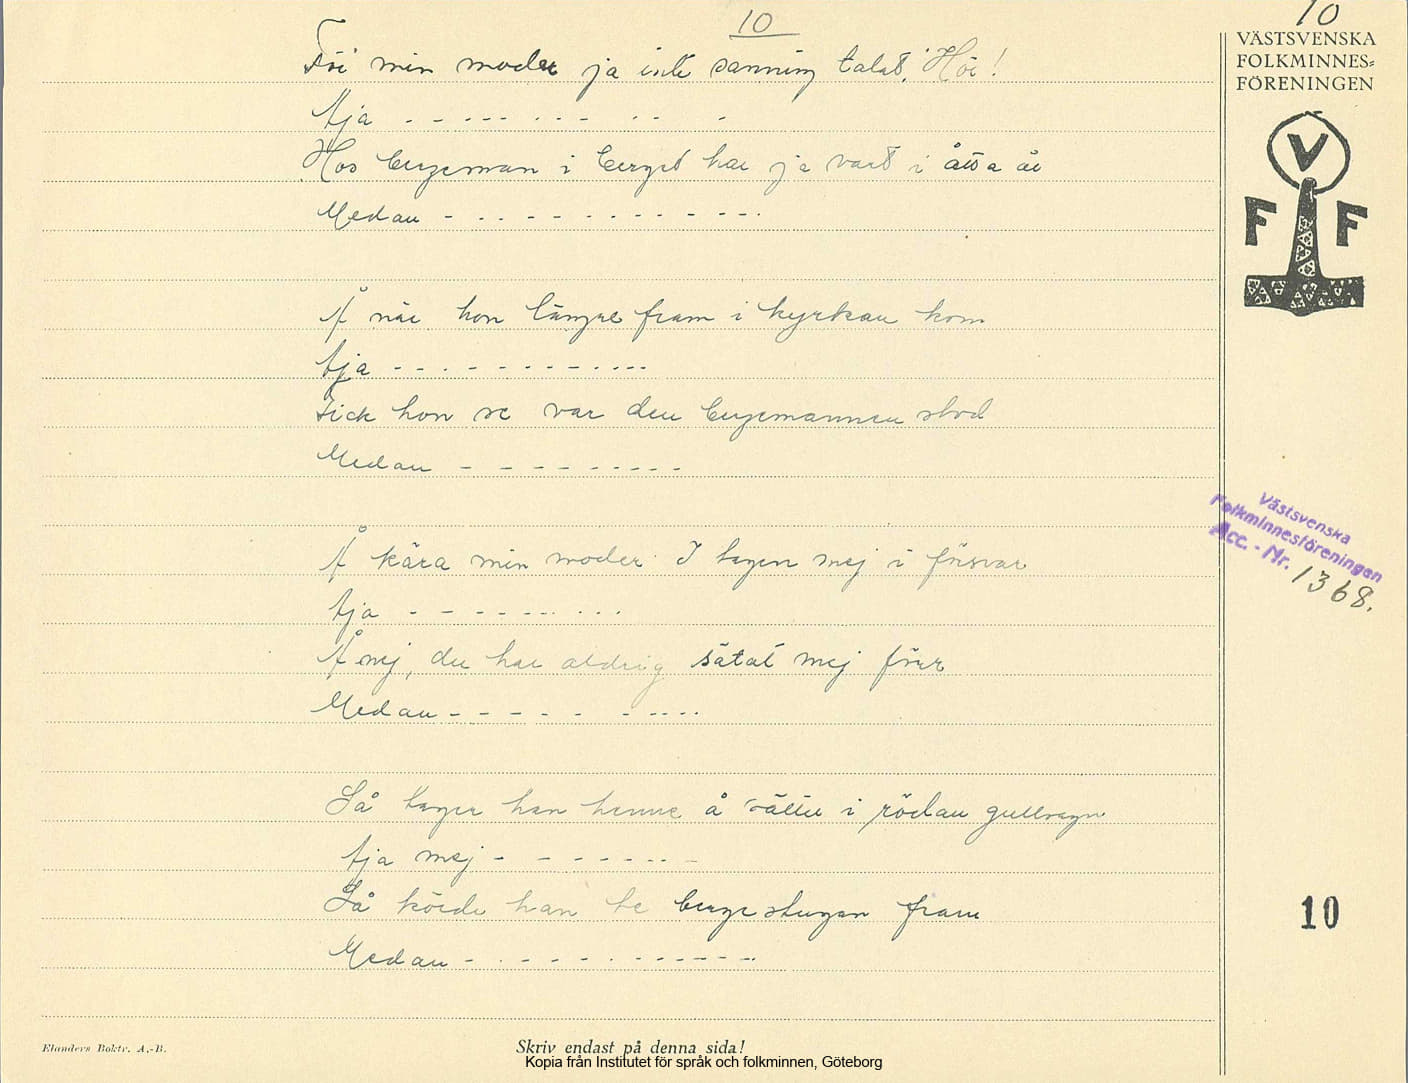 10
10
För min moder ja inte sanning talat. Hör!
Aja - - - - - - - - - - - -
Hos bergeman i berget har ja vart i åtta år
Medan - - - - - - - - - - - -
Å när hon längre fram i kyrkan kom
Aja - - - - - - - - - - - -
Fick hon se var den bergemannen stod
Medan - - - - - - - - -
Å kära min moder I tagen mej i försvar
Aja - - - - - - - - - -
Å nej, du har aldrig sätat mej förr
Medan - - - - - - - - - -
Så tager han henne å sätter i rödan gullvagn
Aja mej - - - - - - - -
Så körde han te bergestugan fram
Medan - - - - - - - - - - - -
VÄSTSVENSKA
FOLKMINNES=
FÖRENINGEN
V
F F
Västsvenska
Folkminnesföreningen
Acc. - Nr. 1368.
10
Elanders Boktr. A.-B.
Skriv endast på denna sida!
Kopia från Institutet för språk och folkminnen, Göteborg